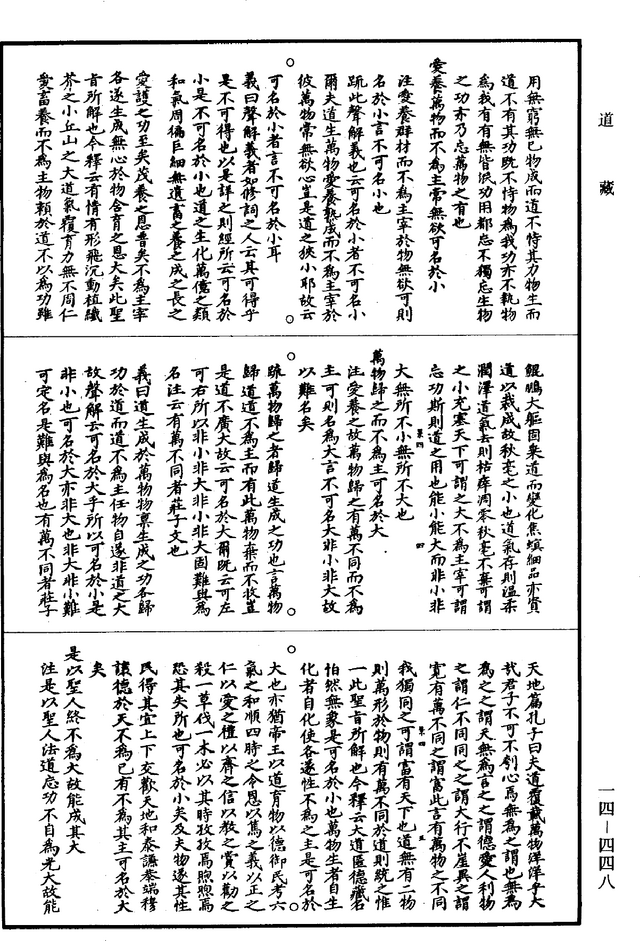 道藏
用無窮無已物成而道不恃其力物生而
道不有其功既不恃物為我功亦不執物
為我有有無皆泯功用都忘不獨忘生物
之功亦乃忘萬物之有也
愛養萬物而不為主常無欲可名於小
注愛養群材而不為主宰於物無欲可則
名於小言不可名小也
疏此聲解義也云可名於小者不可名小
爾夫道生萬物愛養熟成而不為主宰於
彼萬物常無欲心豈是道之狹小耶故云
可名於小者言不可名於小耳
義曰聲解義者如修詞之人云其可得乎
是不可得也以是詳之則經所云可名於
小是不可名於小也道之生化萬億之類
和氣周徧巨細無遺畜之養之成之長之
愛護之功至矣茂養之恩普矣不為主宰
各遂生成無心於物含育之恩大矣此聖
旨所解也今釋云有情有形飛沉動植纖
芥之小丘山之大道氣覆育力無不周仁
愛畜養而不為主物賴於道不以為功雖
鯤鵬大軀固稟道而變化焦螟細品亦資
道以裁成故秋毫之小也道氣存則溫柔
潤澤道氣去則枯瘁凋零秋毫不棄可謂
之小充塞天下可謂之大不為主宰可謂
忘功斯則道之用也能小能大而非小非
大無所不小無所不大也
萬物歸之而不為主可名於大
注愛養之故萬物歸之有萬不同而不為
主可則名為大言不可名大非小非大故
以難名矣
疏萬物歸之者歸道生成之功也言萬物
歸道道不為主而有此萬物棄而不收豈
是道不廣大故云可名於大爾既云可左
可右所以非小非大非小非大固難與為
名注云有萬不同者莊子文也
義曰道生成於萬物物稟生成之功各歸
功於道而道不為主任物自遂非道之大
故聲解云可名於大乎所以可名於小是
非小也可名於大亦非大也非大非小難
可定名是難與為名也有萬不同者莊子
天地篇孔子曰夫道覆載萬物洋洋乎大
哉君子不可不刳心焉無為之謂也無為
為之之謂天無為言之之謂德愛人利物
之謂仁不同同之之謂大行不崖異之謂
寬有萬不同之謂富此言有萬物之不同
我獨同之可謂富有天下也道無有二物
則萬形於物則有萬不同於道則統之惟
一此聖旨所解也今釋云大道匿德藏名
怕然無象是可名於小也萬物生者自生
化者自化使各遂性不為之主是可名於
大也亦猶帝王以道育物以德御民考六
氣之和順四時之令恩以篤之義以正之
仁以愛之禮以齊之信以教之賞以勸之
殺一草伐一木必以其時孜孜焉煦煦焉
恐其失所也可名於小矣及夫物遂其性
民得其宜上下交歡天地和泰謙恭端穆
讓德於天不為已有不為其主可名於大
矣
是以聖人終不為大故能成其大
注是以聖人法道忘功不自為光大故能
一四—四四八